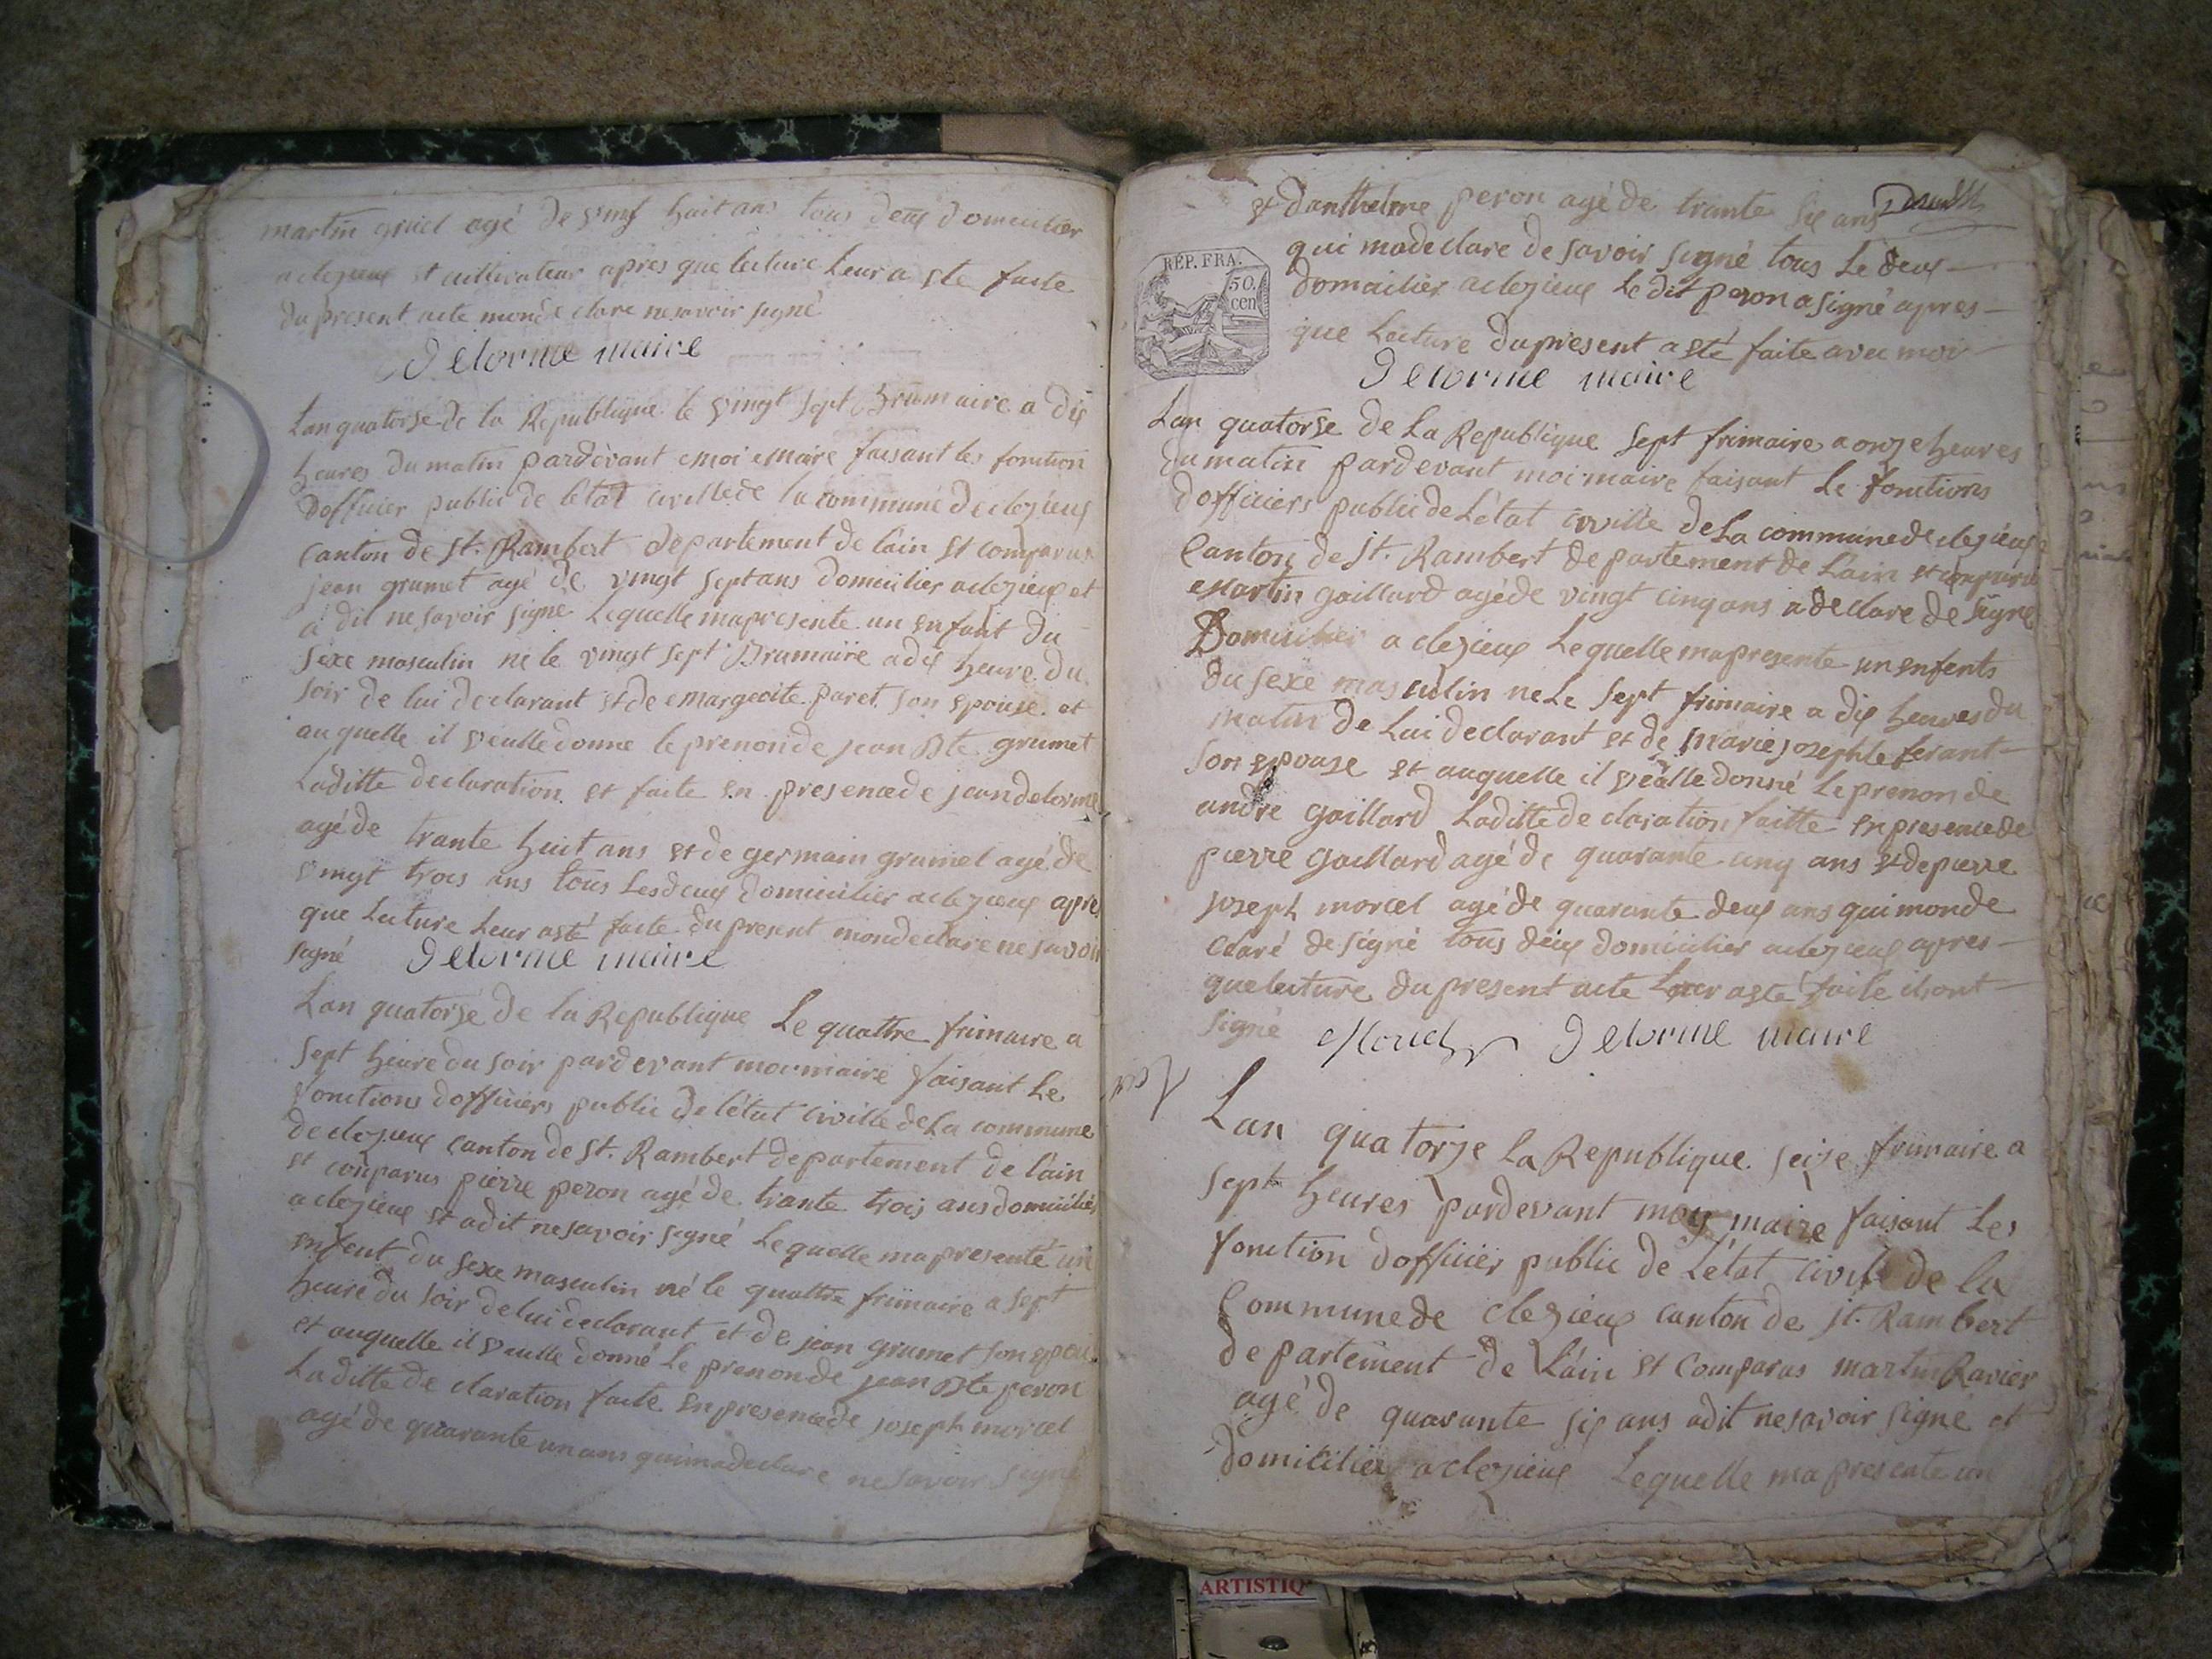 martin gruel agé de vingt huit ans tous deux domicilier
a clezieux et cultivateur apres que lecture leur a ete faite
du present acte monde clare ne savoir signé
Delorme maire
Lan quatorse de la Republique le vingt sept Brumaire a dix
heures du matin pardevant moi maire faisant les fonction
dofficier public de letat civille de la commune de clezieux
canton de st. Rambert departement de lain et comparus
jean grumet agé de vingt sept ans domicilier a clezieux et
a dit ne savoir signé Lequelle mapresente un enfant du
sexe masculin né le vingt sept Brumaire a dix heure du
soir de lui declarant et de margerite paret son epouse et
auquelle il veulle donne le prenon de jean Bte grumet
Laditte declaration et faite en presence de jean delorme
agé de trante huit ans et de germain grumet agé de
vingt trois ans tous Lesdeux domicilier a clezieux apres
que Lecture Leur a eté faite du present mon declare ne savoir
signé Delorme maire
Lan quatorse de la Republique Le quattre frimaire a
sept heure du soir pardevant moi maire faisant Le
fonctions dofficiers public de létat civille de La commune
de clezieux canton de St. Rambert departement de lain
et conparus pierre peron agé de trante trois ans domicilié
a clezieux et adit ne savoir signé Lequelle mapresenté un
enfent du sexe masculin né le quattre frimaire a sept
heure du soir de lui declarant et de jean grumet son epou
et auquelle il veulle donné Le prenon de jean Bte peron
Laditte de claration faite en presence de joseph morcel
agé de quarante un ans qui ma declare ne savoir signé
et danthelme peron agé de trante six ans
qui ma declare de savoir signé tous Le deux
REP. FRA.
50 cen
domicilier a clezieux Le dit peron a signé apres
que Lecture du present a eté faite avec moi
Delorme maire
Lan quatorse de La Republique sept frimaire a onze heures
du matin pardevant moi maire faisant Le fonctions
dofficiers public de Létat civille de La commune de clezieux
Canton de St. Rambert departement de Lain et comparu
Martin gaillard agé de vingt cinq ans a declare de signe
Domicilier a clezieux Lequelle mapresente un enfents
du sexe masculin ne Le sept frimaire a dix heures du
matin de Lui declarant et de marie joseph le ferant
son epouse et auquelle il veulle donné Le prenon de
andre gaillard Laditte de claration faitte en presence de
pierre gaillard agé de quarante cinq ans et de pierre
joseph morcel agé de quarante deux ans qui monde
claré de signé tous deux domicilier a clezieux apres
que lecture du present acte Leur a eté faite il ont
signé Delorme maire
Lan quatorze la Republique seize frimaire a
sept heures pardevant moy maire faisant Les
fonction dofficier public de Létat civile de la
Commune de clezieux canton de st. Rambert
departement de Lain et Comparus martin Ravier
agé de quarante six ans adit ne savoir signe et
domicilier a clezieux Lequelle mapresente un
ARTISTIQ